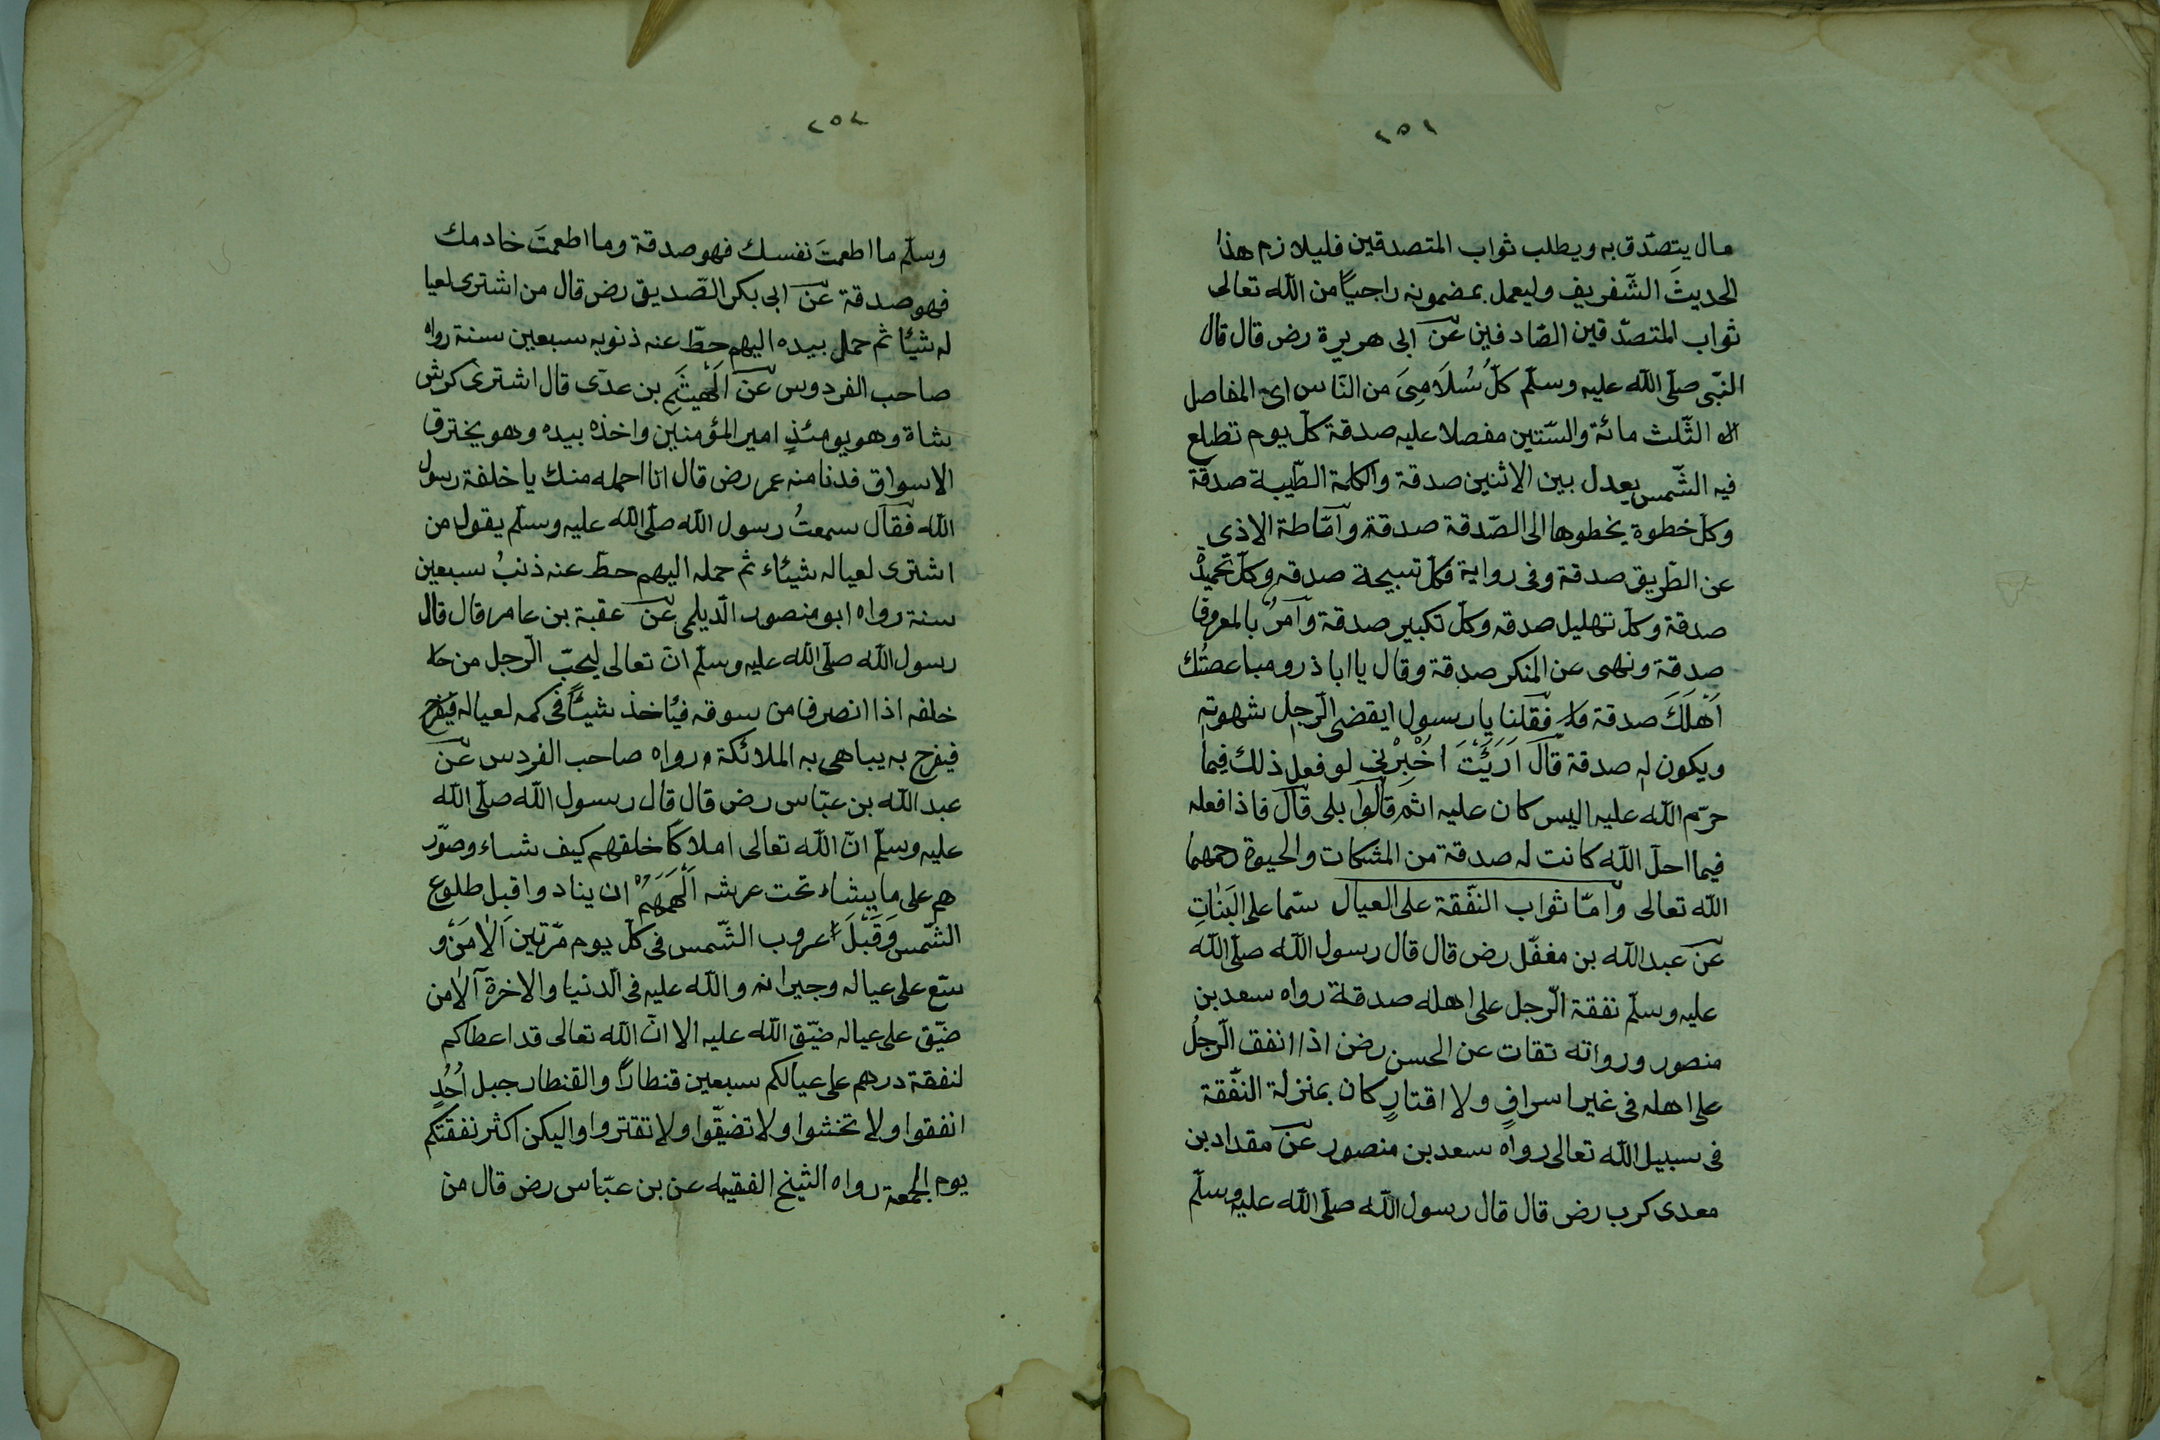 ٢٥١
مال يتصدّق به ويطلب ثواب المتصدقين فليلازم هذا
الحديثَ الشّفريف وليعمل بمضمونه راجيًا من اللّه تعالى
ثواب المتصدّقين الصّادقين عن ابى هريرة رض قال قال
النّبى صلّى اللّه عليه وسلّم كلّ سُلَامِىَ من النّاس اىّ المفاصل
الثّلث مائة والستّين مفصلا عليه صدقة كلّ يوم تطلع
فيه الشّمس يعدل بين الاثنين صدقة والكلمة الطّيبة صدقة
وكلّ خطوة يخطوها الى الصّدقة صدقة وامّاطة الاذى
عن الطّريق صدقة وفى رواية فكلّ تسبيحة صدقه وكلّ تحميدٌ
صدقة وكلّ تهليل صدقه وكلّ تكبير صدقة وامرٌ بالمعروف
صدقة ونهى عن المنكر صدقة وقال يا ابا ذر ومباعضتُك
اَهْلَكَ صدقة فقلنا يا رسول ايقضى الرّجل شهوته
ويكون له صدقة قال اَرَيَتَ اخْبِرْنِى لو فعل ذلك فيما
حرّم اللّه عليه اليس كان عليه اثم قالوا بلى قال فاذا فعله
فيما احلّ اللّه كانت له صدقة من المشكات والحيوة رحمهما
اللّه تعالى وامّا ثواب النّفقة على العيال سّما على البَنَاتِ
عن عبد اللّه بن مغفّل رض قال قال رسول اللّه صلّى اللّه
عليه وسلّم نفقة الرّجل على اهله صدقة رواه سعد بن
منصور ورواته تقات عن الحسن رض اذا انفق الرّجلُ
على اهله فى غير اسرافٍ ولا اقتارٍ كان بمنزلة النّفقة
فى سبيل اللّه تعالى رواه سعد بن منصور عن مقداد بن
معدى كرب رض قال قال رسول اللّه صلّى اللّه عليه وسلّم
٢٥٢
وسلّم ما اطعمتَ نفسك فهو صدقة وما اطعمتَ خادمك
فهو صدقة عن ابى بكر الصّديق رض قال من اشترى لعيا
له شيئًا ثم حمل بيده اليهم حطّ عنه ذنوبه سبعين سنة رواه
صاحب الفردوس عن الَهيثَمِ بن عدّى قال اشترى كرش
شاة وهو يومئذٍ امير المؤمنين واخذه بيده وهو يخترق
الاسواق فدنا منه عمر رض قال انا احمله منك يا خلفة رسول
اللّه فقال سمعتُ رسول اللّه صلّى اللّه عليه وسلّم يقول من
اشترى لعياله شيئاء ثم حمله اليهم حطّ عنه ذنبُ سبعين
سنة رواه ابو منصور الدّيلمى عن عقبة بن عامر قال قال
رسول اللّه صلّى اللّه عليه وسلّم انّ تعالى ليحبّ الرّجل من
خلفه اذا انصرف من سوقه فيئاخذ شيئًا فى كمه لعياله فيفرح
فيفرح به يباهى به الملائكة رواه صاحب الفردس عن
عبد اللّه بن عبّاس رض قال قال رسول اللّه صلّى اللّه
عليه وسلّم انّ اللّه تعالى املاكًا خلقهم كيف شاء وصوّر
هم على ما يشاء تحت عرشه اَلْهَمَهُمْ ان ينادوا قبل طلوع
الشّمس وَقَبْلَ غروب الشّمس فى كلّ يوم مرّتين اَلاَ مَنْ و
سّع على عياله وجيرانه واللّه عليه فى الدّنيا والاخرة اَلاَ من
ضيّق على عياله ضيّق اللّه عليه الا انّ اللّه تعالى قد اعطاكم
لنفقة درهم على عيالكم سبعين قنطارًا والقنطار جبل اُحُدٍ
انفقوا ولا تخشوا ولا تضيّقوا ولا تقتروا واليكن اكثر نفقتكم
يوم الجمعة رواه الشّيخ الفقيه عن بن عبّاس رض قال من